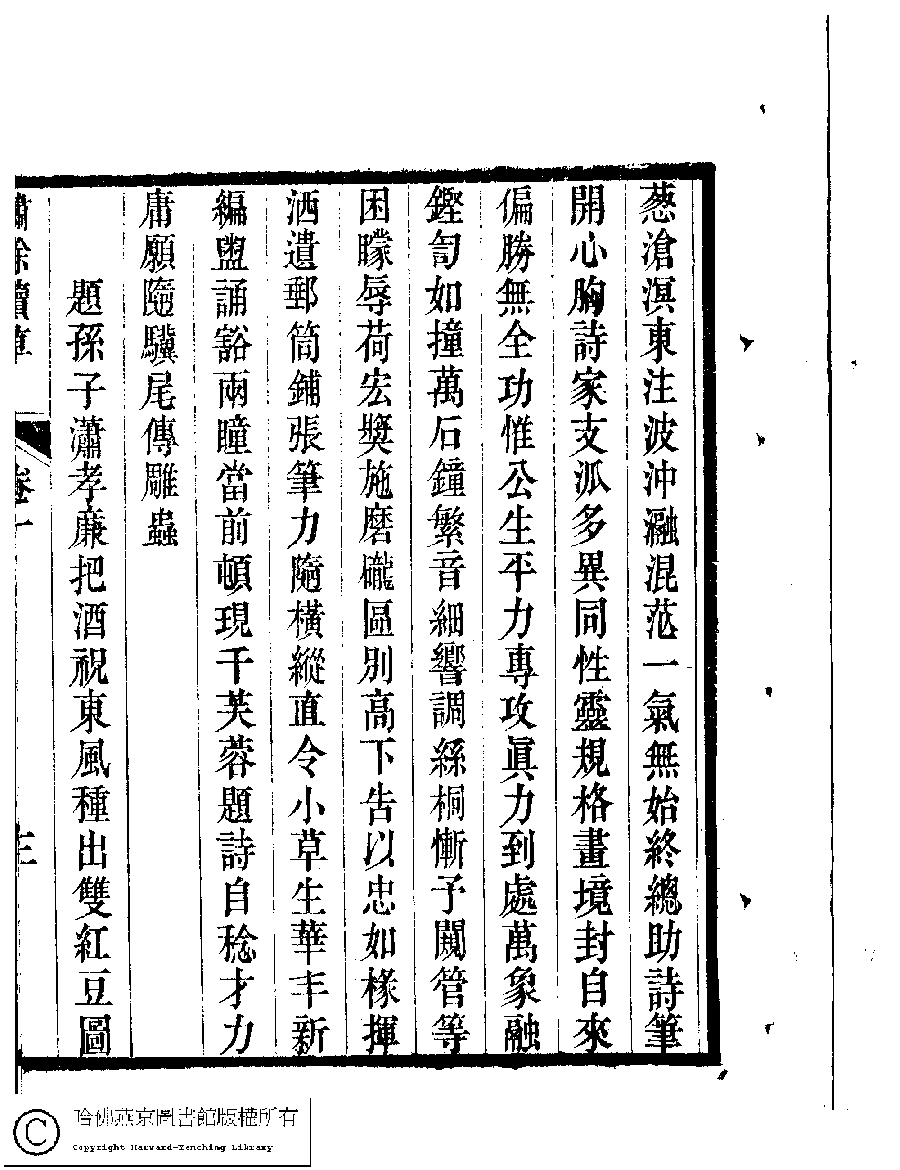 蔥滄溟東注波沖瀜混茫一氣無始終總助詩筆
開心胸詩家支派多異同性靈規格畫境封自來
偏勝無全功惟公生平力專攻眞力到處萬象融
鏗訇如撞萬石鐘繁音細響調絲桐慚予闚管等
困矇辱荷宏獎施磨礲區別高下告以忠如椽揮
洒遺郵筒鋪張筆力隨橫縱直令小草生華丰新
編盥誦豁兩瞳當前頓現千芙蓉題詩自稔才力
庸願隨驥尾傳雕蟲
題孫子瀟孝廉把酒祝東風種出雙紅豆圖
卷十
哈佛燕京圖書館版權所有
Copyright Harvard-Yenching Library